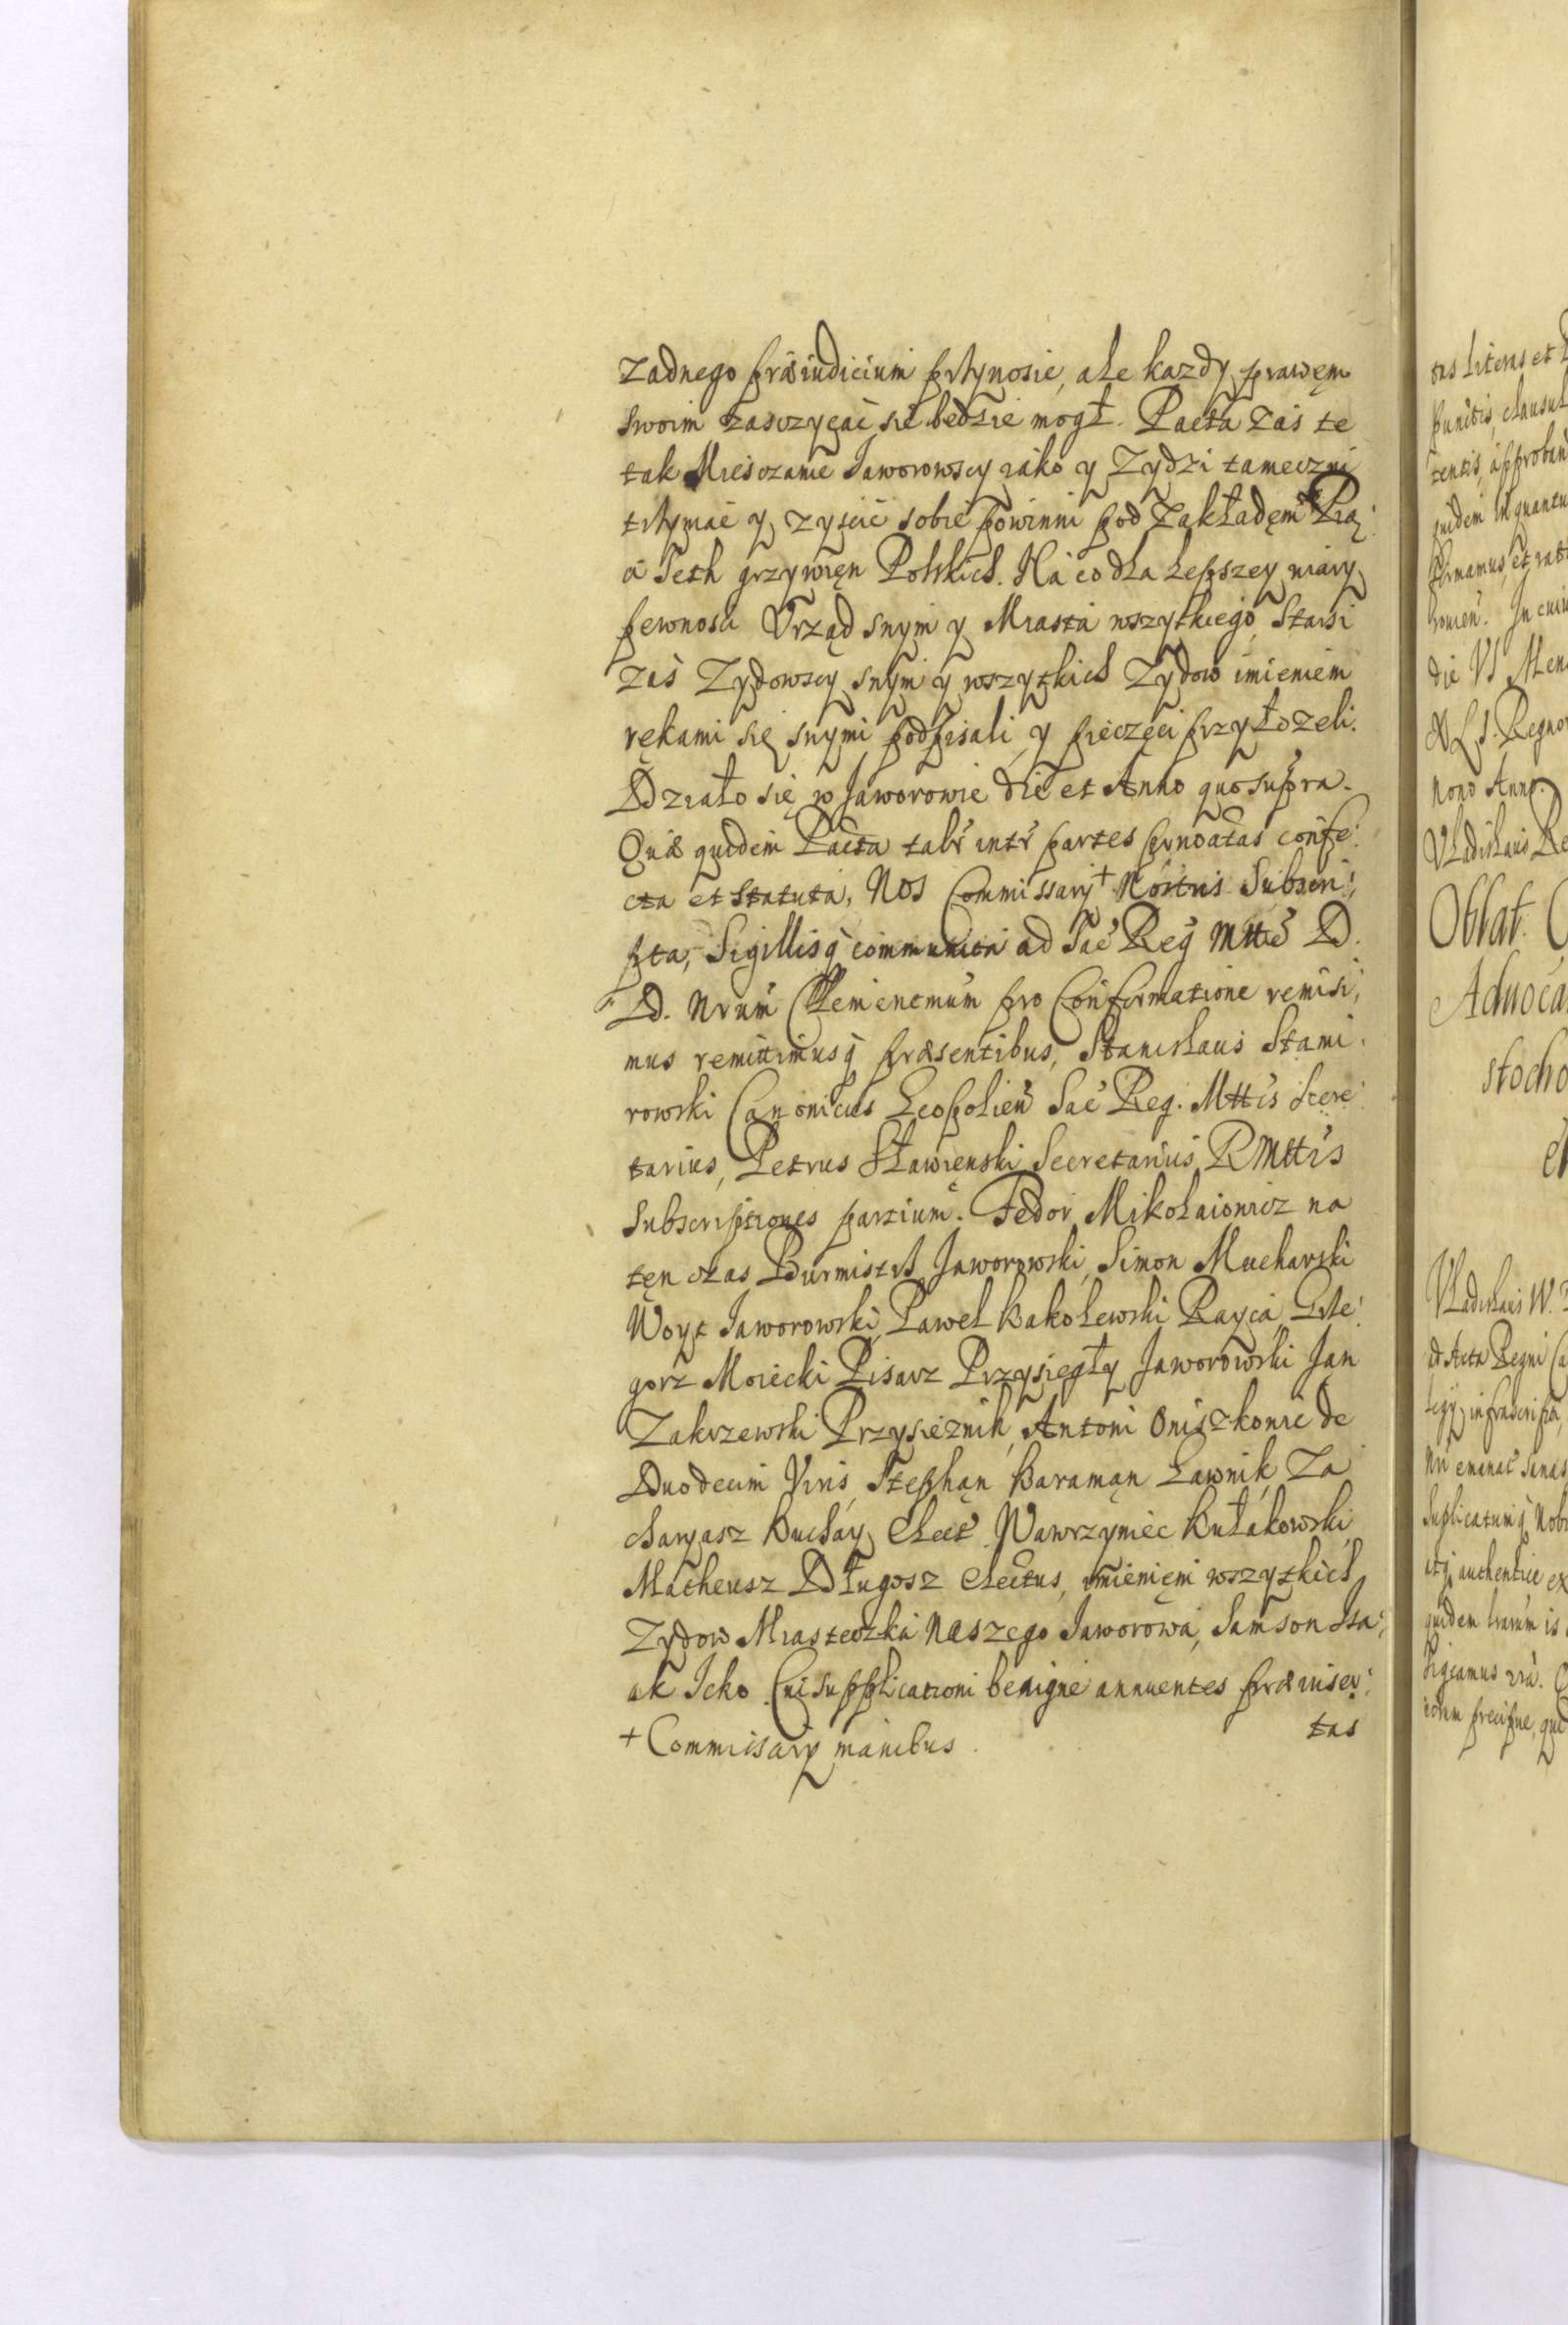 zadnego præiudicium prżynosić, ale kazdy prawęm
swoim zasczyćać się bedzie mogł. Pacta zas te
tak Miesczanie Jaworowscy iako y Zydzi tameczni
trżymać y zyscić sobie powinni pod Zakładęm Pią:
ci Seth grzywięn Polskich. Na co dla lepszey wiary
pewnosci Vrząd snym y Miasta wszytkiego, Starsi
zas Zydowscy snym y wszytkich Zydow imieniem
rękami się snymi podpisali, y pieczęci przyłozeli.
Działo się w Jaworowie die et Anno quo supra.
Quæ quidem Pacta talr intr partes prnoatas confe:
cta et statuta, Nos Commissarÿ + Nostris Subscri:
pta, Sigillisq communita ad Sac Reg Mtte D.
D. Nrum Clementmum pro Confirmatione remisi:
mus remittimusq præsentibus, Stanislaus Stami:
rowski Canonicus Leopolien Sac Reg. Mttis Secre:
tarius, Petrus Sławięnski Secretarius RMttis
Subscriptiones partium. Fedor Mikolaiowicz na
tęn czas Burmistrż Jaworowski, Simon Mucharski
Woyt Jaworowski, Pawel Bakolewski Rayca, Grże:
gorz Moiecki Pisarz Przysięgły Jaworowski Jan
Zakrzewski Przysieznik, Antoni Oniszkowic de
Duodecim Viris, Stephan Baraman Lawnik, Za
charyasz Buchay, Elect Wawrzyniec Bułakowski,
Matheusz Długosz electus, imienięm wszytkich
Zydow Miasteczka Naszego Jaworowa, Samson Isa:
ak Icko. Cui supplicationi benigne annuentes præinser:
tas
+ Commissarÿ manibus.
tas Literas et
punctis, clausul
tentis, approban
quidem inquantu
firmamus, et rat
In cuiu
die VI Men
Regno
nono Anno.
Vladislaus Re
Oblat. C
Aduoca
stocho
Vladislaus W.
ad Acta Regni Ca
infrascripta,
Nri emanat sanas
supplicatumq Nobi
authentice ex
quidem